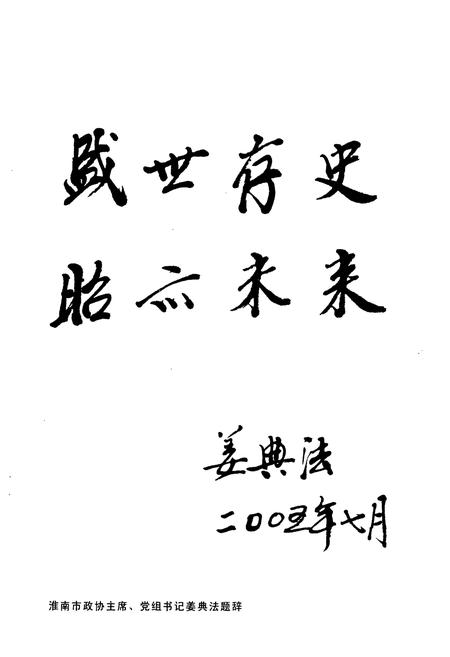 盛世存史
昭示未来
姜典法
二〇〇五年七月
淮南市政协主席、党组书记姜典法题辞